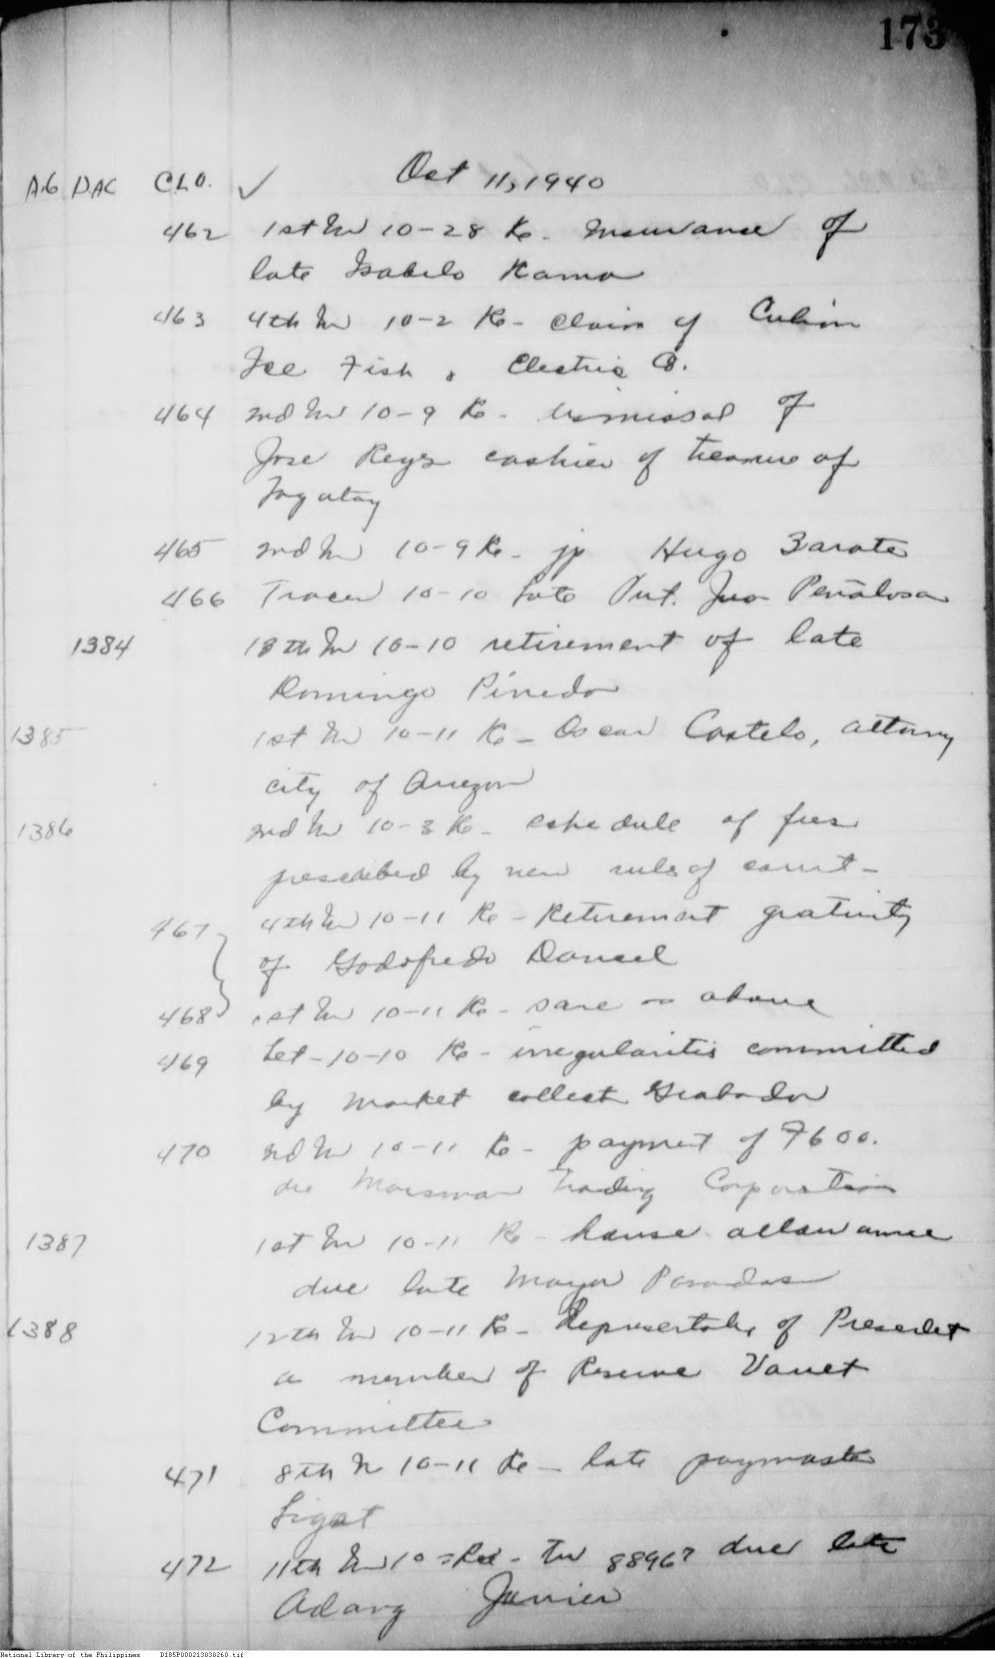 173
AG DAC CLO. ✓ Oct 11, 1940
462 1st In 10-28 Re- Insurance of
late Isabelo Rama
463 4th In 10-2 Re- claim of Culion
Ice Fish & Electric Co.
464 2nd In 10-9 Re- dismissal of
Jose Reyes cashier of treasurer of
Tagatay
465 2nd In 10-9 Re- jp Hugo Zarate
466 Tracer 10-10 late Juo Peñalosa
1384 18th In 10-10 retirement of late
Domingo Pinedo
1385 1st In 10-11 Re- Oscar Castelo, attorny
city of
1386 2nd In 10-3 Re- schedule of fees
prescribed by new rules of court-
467 4th In 10-11 Re- Retirement gratuity
of Godofredo
468 1st In 10-11 Re- same as above
469 Let- 10-10 Re- irregularities committed
by market collector Grabador
470 2nd In 10-11 Re- payment of ₱600.
due Marsman Trading Corporation
1387 1st In 10-11 Re- house allowance
due late Mayor Paradas
1388 12th In 10-11 Re- Representative of President
a member of Reserve
Committee
471 8th In 10-11 Re- late paymaster
Ligot
472 11th In 10 88967 due late
Adang Javier